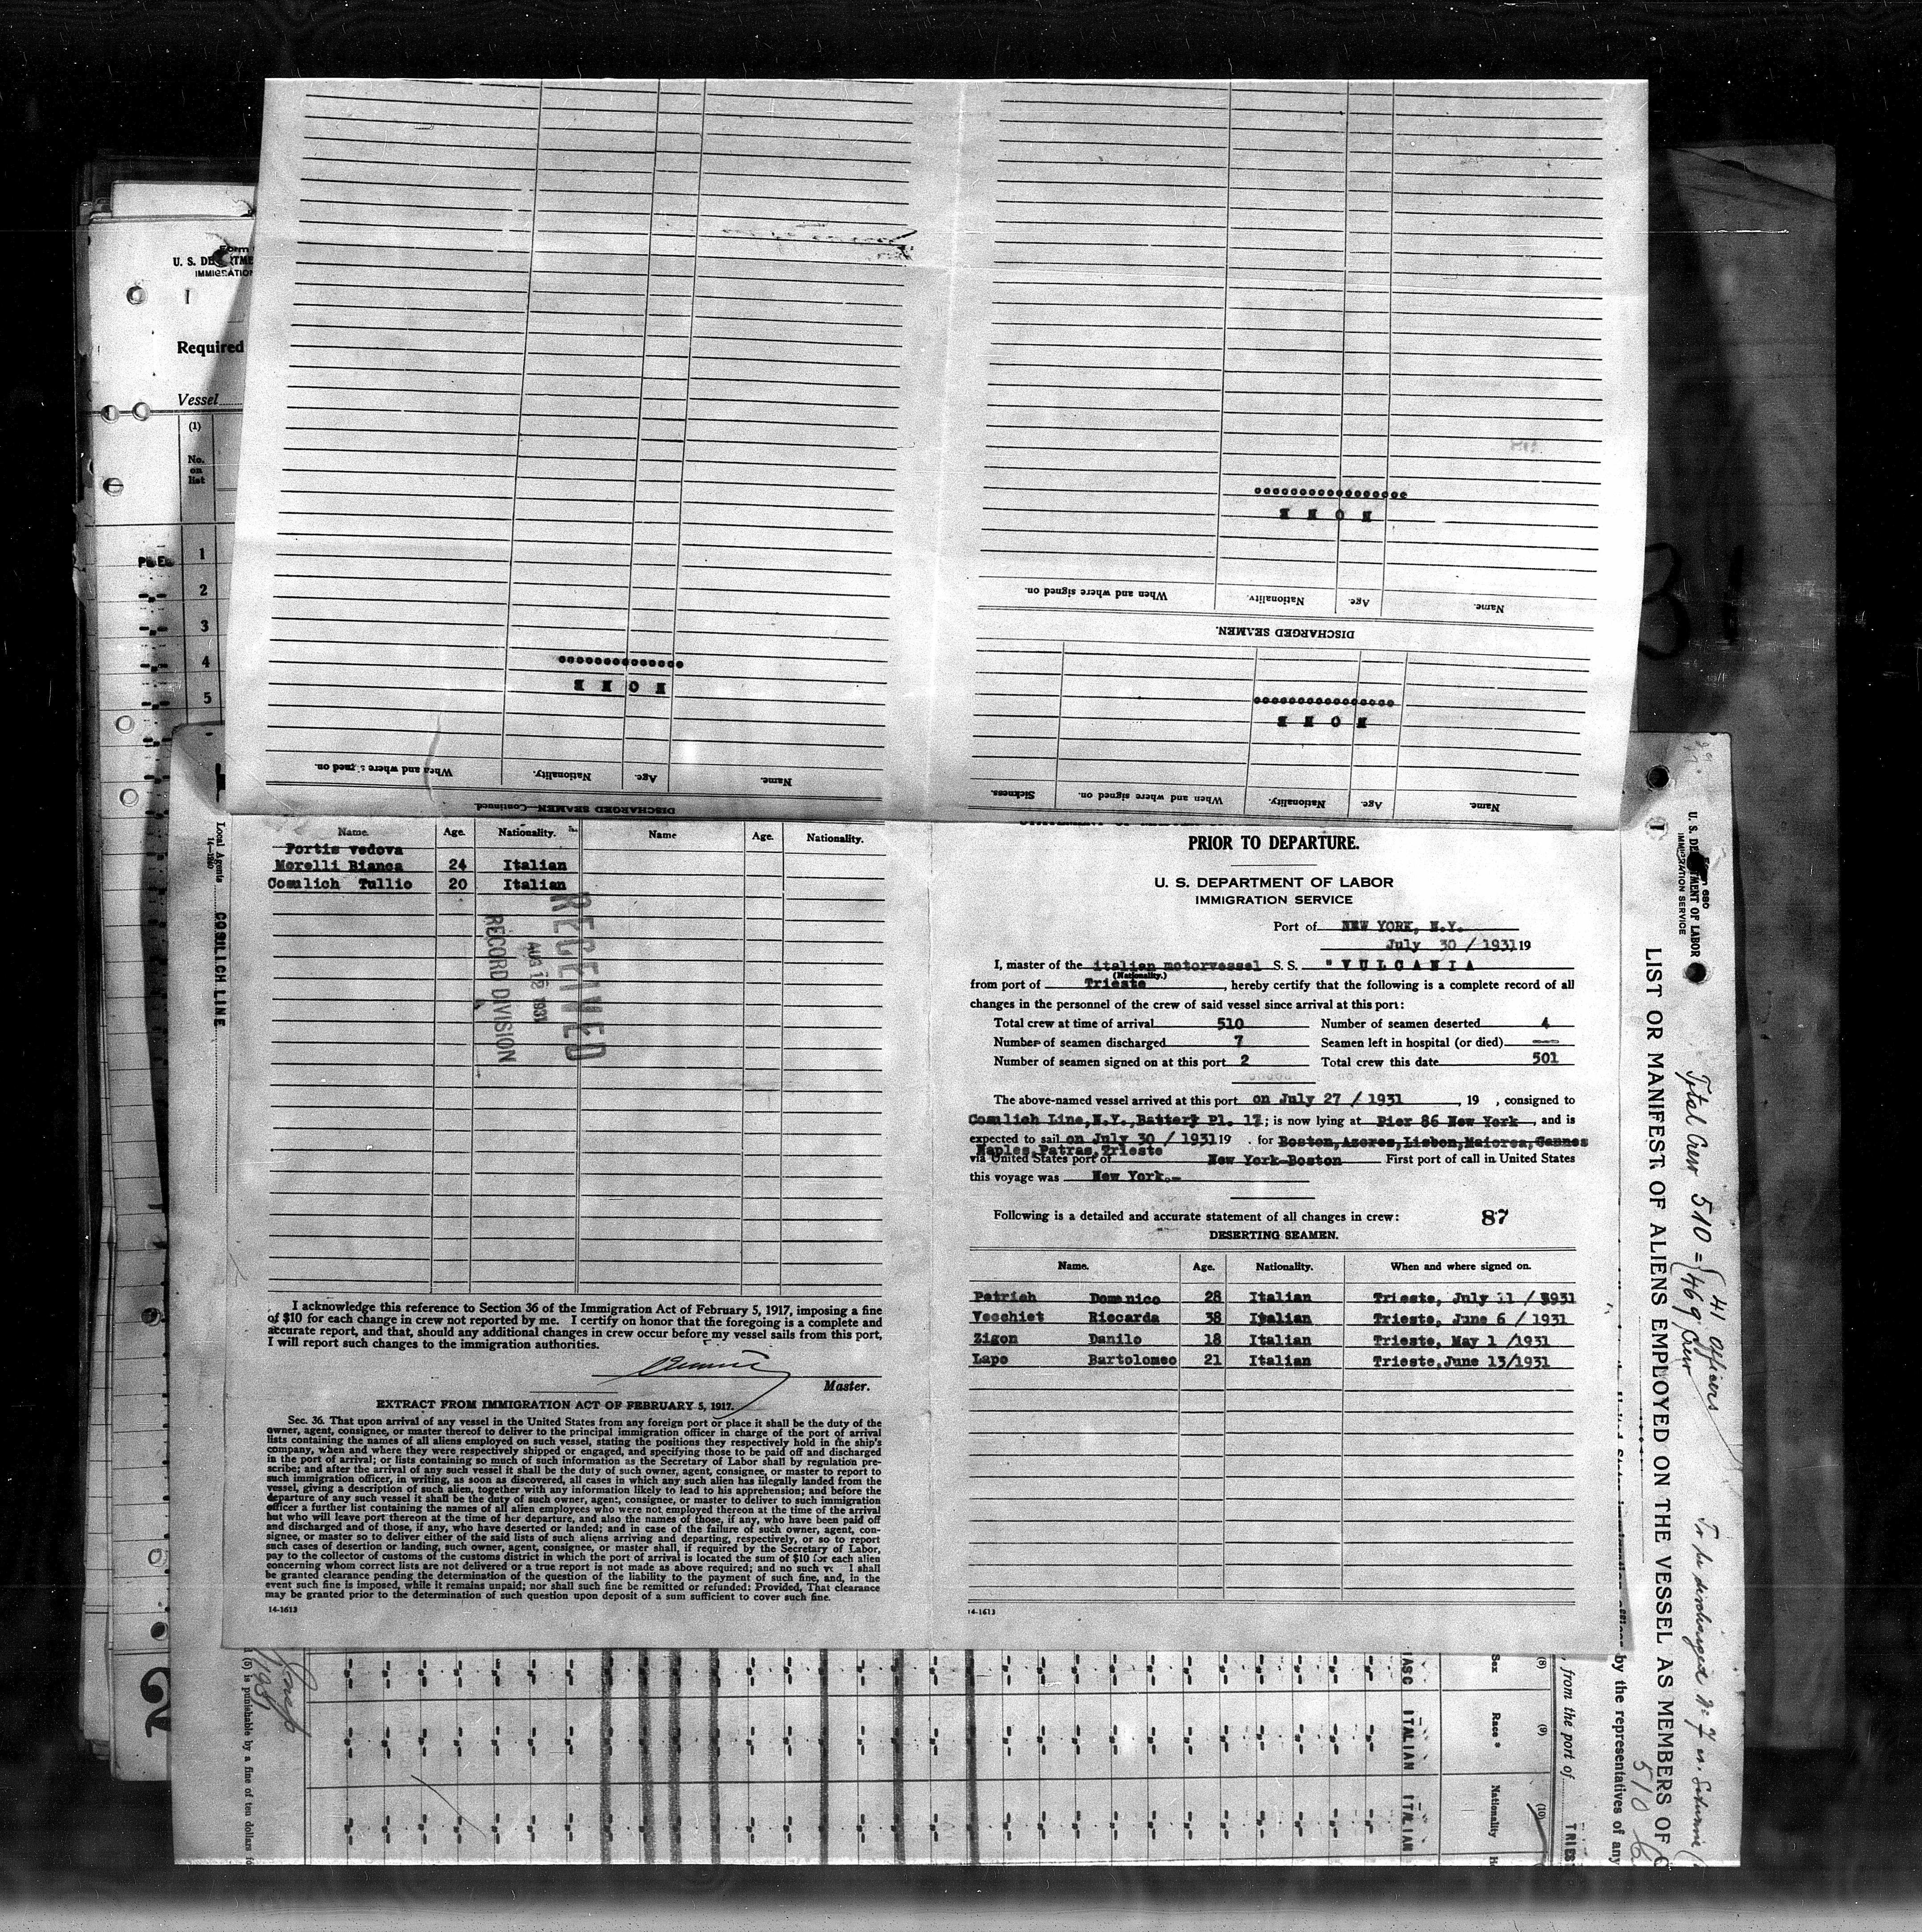 U. S. DE
IMMIGRATION
Required
Vessel
(1)
No.
on
list
1
2
3
4
5
When and where signed on.
Nationality.
Age.
Name.
DISCHARGED SEAMEN.
N O N E
Name.
Age.
Nationality.
When and where signed on.
DISCHARGED SEAMEN—Continued
N O N E
Name.
Age.
Nationality.
When and where signed on.
Sickness.
N O N E
Name.
Age.
Nationality.
Name
Age.
Nationality.
Fortis vedova
Morelli Bianca 24 Italian
Cosulich Tullio 20 Italian
RECEIVED
AUG 12 1931
RECORD DIVISION
I acknowledge this reference to Section 36 of the Immigration Act of February 5, 1917, imposing a fine
of $10 for each change in crew not reported by me. I certify on honor that the foregoing is a complete and
accurate report, and that, should any additional changes in crew occur before my vessel sails from this port,
I will report such changes to the immigration authorities.
Master.
EXTRACT FROM IMMIGRATION ACT OF FEBRUARY 5, 1917.
Sec. 36. That upon arrival of any vessel in the United States from any foreign port or place it shall be the duty of the
owner, agent, consignee, or master thereof to deliver to the principal immigration officer in charge of the port of arrival
lists containing the names of all aliens employed on such vessel, stating the positions they respectively hold in the ship's
company, when and where they were respectively shipped or engaged, and specifying those to be paid off and discharged
in the port of arrival; or lists containing so much of such information as the Secretary of Labor shall by regulation pre-
scribe; and after the arrival of any such vessel it shall be the duty of such owner, agent, consignee, or master to report to
such immigration officer, in writing, as soon as discovered, all cases in which any such alien has illegally landed from the
vessel, giving a description of such alien, together with any information likely to lead to his apprehension; and before the
departure of any such vessel it shall be the duty of such owner, agent, consignee, or master to deliver to such immigration
officer a further list containing the names of all alien employees who were not employed thereon at the time of the arrival
but who will leave port thereon at the time of her departure, and also the names of those, if any, who have been paid off
and discharged and of those, if any, who have deserted or landed; and in case of the failure of such owner, agent, con-
signee, or master so to deliver either of the said lists of such aliens arriving and departing, respectively, or so to report
such cases of desertion or landing, such owner, agent, consignee, or master shall, if required by the Secretary of Labor,
pay to the collector of customs of the customs district in which the port of arrival is located the sum of $10 for each alien
concerning whom correct lists are not delivered or a true report is not made as above required; and no such ve l shall
be granted clearance pending the determination of the question of the liability to the payment of such fine, and, in the
event such fine is imposed, while it remains unpaid; nor shall such fine be remitted or refunded: Provided, That clearance
may be granted prior to the determination of such question upon deposit of a sum sufficient to cover such fine.
14-1613
PRIOR TO DEPARTURE.
U. S. DEPARTMENT OF LABOR
IMMIGRATION SERVICE
Port of NEW YORK, N.Y.
July 30 / 1931 19
I, master of the italian motorvessel S. S. "VULCANIA
(Nationality.)
from port of Trieste, hereby certify that the following is a complete record of all
changes in the personnel of the crew of said vessel since arrival at this port:
Total crew at time of arrival 510 Number of seamen deserted 4
Number of seamen discharged 7 Seamen left in hospital (or died) —
Number of seamen signed on at this port 2 Total crew this date 501
The above-named vessel arrived at this port on July 27 / 1931, 19 , consigned to
Cosulich Line,N.Y.,Battery Pl. 17; is now lying at Pier 86 New York, and is
expected to sail on July 30 / 1931 19 . for Boston,Azores,Lisbon,Majorca,Cannes
Naples,Patras,Trieste
via United States port of New York-Boston First port of call in United States
this voyage was New York.-
Following is a detailed and accurate statement of all changes in crew: 87
DESERTING SEAMEN.
Name. Age. Nationality. When and where signed on.
Patrich Domenico 28 Italian Trieste, July 11 / 1931
Vecchiet Riccarda 38 Italian Trieste, June 6 / 1931
Zigon Danilo 18 Italian Trieste, May 1 /1931
Lapo Bartolomeo 21 Italian Trieste,June 13/1931
14-1613
Local Agents COSULICH LINE
14-1260
U. S. DEPARTMENT OF LABOR
IMMIGRATION SERVICE
LIST OR MANIFEST OF ALIENS EMPLOYED ON THE VESSEL AS MEMBERS OF C
Total Crew 510 = 41 Officers
469 Crew
To be discharged
510
by the representatives of any
, from the port of TRIEST
(8)
Sex
(9)
Race *
(10)
Nationality
MASC ITALIAN ITALIAN
(5) is punishable by a fine of ten dollars fo
2